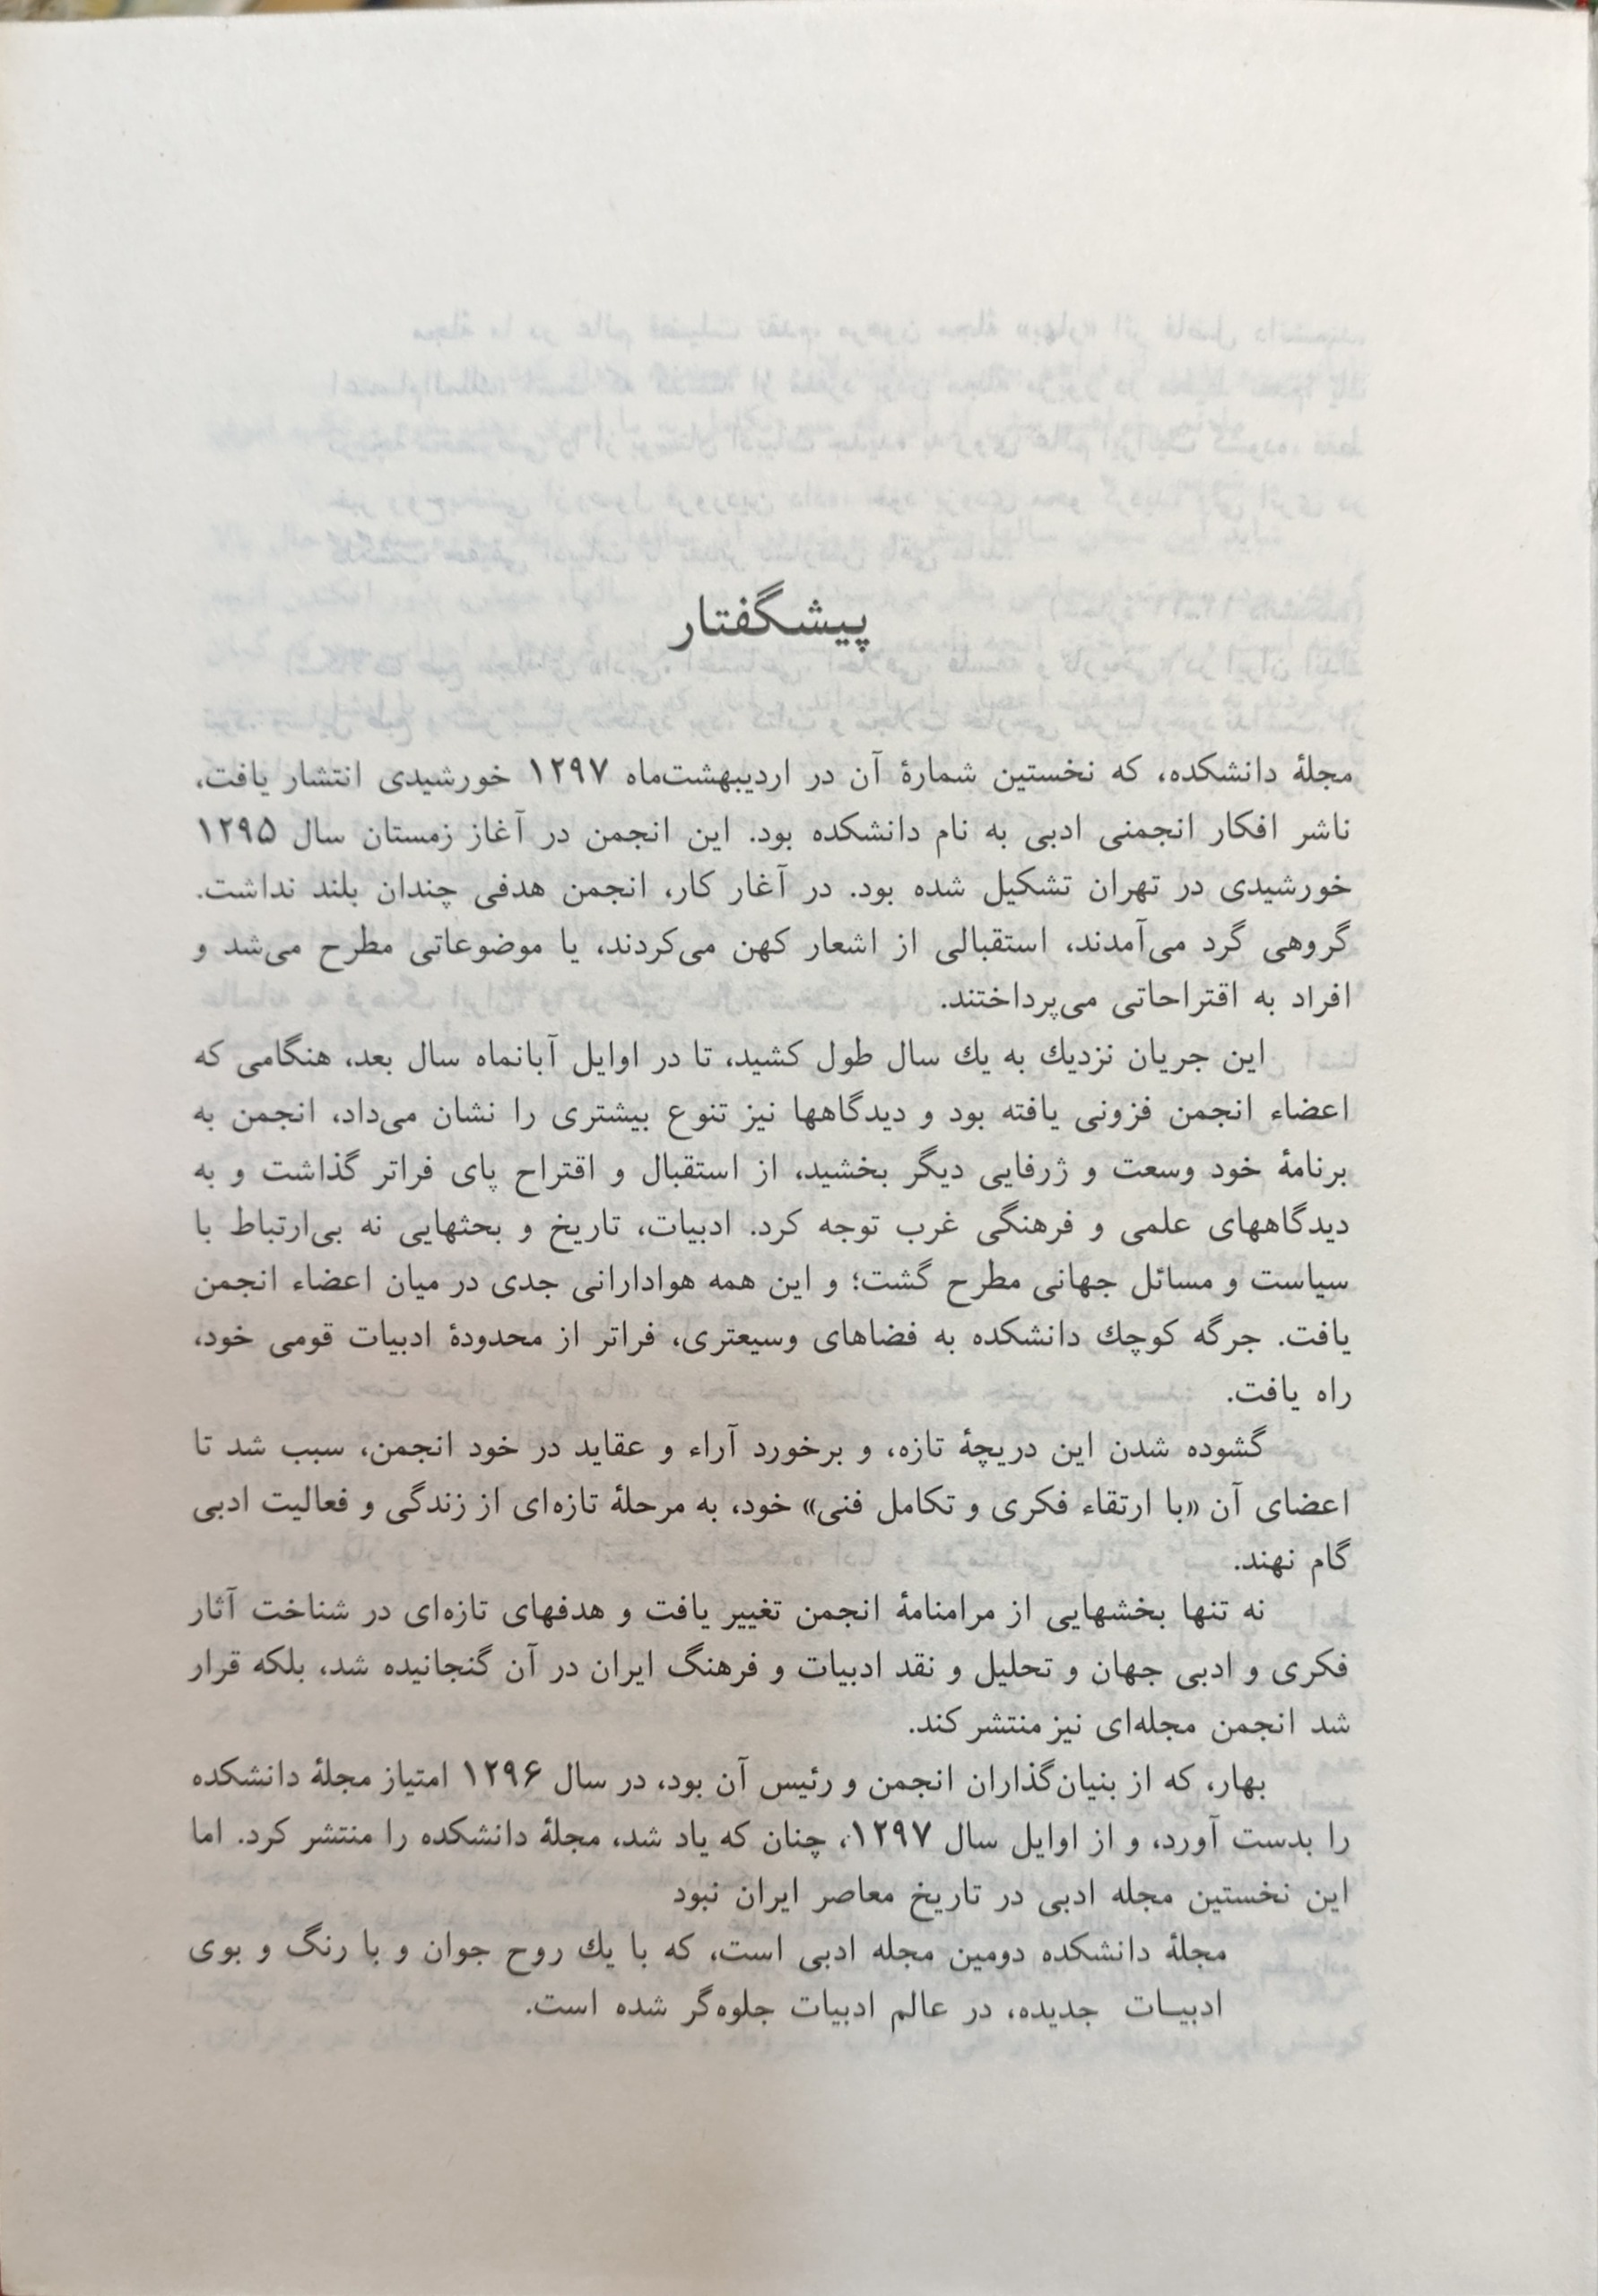 پیشگفتار
مجلهٔ دانشکده، که نخستین شمارهٔ آن در اردیبهشت‌ماه ۱۲۹۷ خورشیدی انتشار یافت،
ناشر افکار انجمنی ادبی به نام دانشکده بود. این انجمن در آغاز زمستان سال ۱۲۹۵
خورشیدی در تهران تشکیل شده بود. در آغار کار، انجمن هدفی چندان بلند نداشت.
گروهی گرد می‌آمدند، استقبالی از اشعار کهن می‌کردند، یا موضوعاتی مطرح می‌شد و
افراد به اقتراحاتی می‌پرداختند.
این جریان نزدیك به یك سال طول کشید، تا در اوایل آبانماه سال بعد، هنگامی که
اعضاء انجمن فزونی یافته بود و دیدگاهها نیز تنوع بیشتری را نشان می‌داد، انجمن به
برنامهٔ خود وسعت و ژرفایی دیگر بخشید، از استقبال و اقتراح پای فراتر گذاشت و به
دیدگاههای علمی و فرهنگی غرب توجه کرد. ادبیات، تاریخ و بحثهایی نه بی‌ارتباط با
سیاست و مسائل جهانی مطرح گشت؛ و این همه هوادارانی جدی در میان اعضاء انجمن
یافت. جرگه کوچك دانشکده به فضاهای وسیعتری، فراتر از محدودهٔ ادبیات قومی خود،
راه یافت.
گشوده شدن این دریچهٔ تازه، و برخورد آراء و عقاید در خود انجمن، سبب شد تا
اعضای آن «با ارتقاء فکری و تکامل فنی» خود، به مرحلهٔ تازه‌ای از زندگی و فعالیت ادبی
گام نهند.
نه تنها بخشهایی از مرامنامهٔ انجمن تغییر یافت و هدفهای تازه‌ای در شناخت آثار
فکری و ادبی جهان و تحلیل و نقد ادبیات و فرهنگ ایران در آن گنجانیده شد، بلکه قرار
شد انجمن مجله‌ای نیز منتشر کند.
بهار، که از بنیان‌گذاران انجمن و رئیس آن بود، در سال ۱۲۹۶ امتیاز مجلهٔ دانشکده
را بدست آورد، و از اوایل سال ۱۲۹۷، چنان که یاد شد، مجلهٔ دانشکده را منتشر کرد. اما
این نخستین مجله ادبی در تاریخ معاصر ایران نبود
مجلهٔ دانشکده دومین مجله ادبی است، که با یك روح جوان و با رنگ و بوی
ادبیـات جدیده، در عالم ادبیات جلوه‌گر شده است.